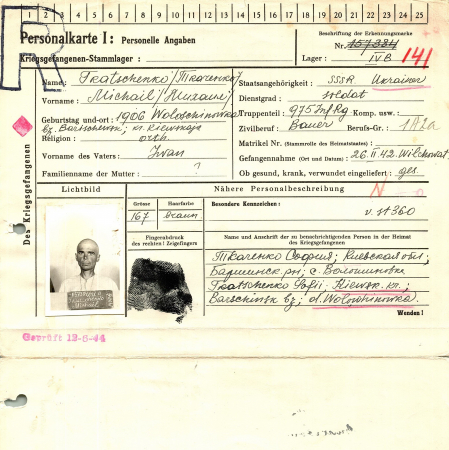 1 2 3 4 5 6 7 8 9 10 11 12 13 14 15 16 17 18 19 20 21 22 23 24 25
R
Personalkarte I: Personelle Angaben
Kriegsgefangenen-Stammlager :
Beschriftung der Erkennungsmarke
Nr.
Lager : IV B
141
Des Kriegsgefangenen
Name : Tkatschenko /Ткаченко/
Vorname : Michail /Михаил/
Geburtstag und -ort : 1906 Woloschinowka
bz. Barschinski, kr. Kiewskaja
Religion : orth.
Vorname des Vaters : Iwan
Familienname der Mutter : ?
Staatsangehörigkeit : SSSR Ukrainer
Dienstgrad : Soldat
Truppenteil : 975 Inf Rg Komp. usw.:
Zivilberuf : Bauer Berufs-Gr.:
Matrikel Nr. (Stammrolle des Heimatstaates) :
Gefangennahme (Ort und Datum) : 26.II.42
Ob gesund, krank, verwundet eingeliefert : ges.
Lichtbild
Nähere Personalbeschreibung
Grösse
167
Haarfarbe
braun
Besondere Kennzeichen :
v. st 360
Fingerabdruck
des rechten ! Zeigefingers
Name und Anschrift der zu benachrichtigenden Person in der Heimat
des Kriegsgefangenen
Ткаченко София; Киевская обл;
с. Волошиновка
Tkatschenko Sofii, Kiewsk. kr.;
Barschinsk bz; d. Woloshinowka.
Wenden !
Geprüft 12-6-44